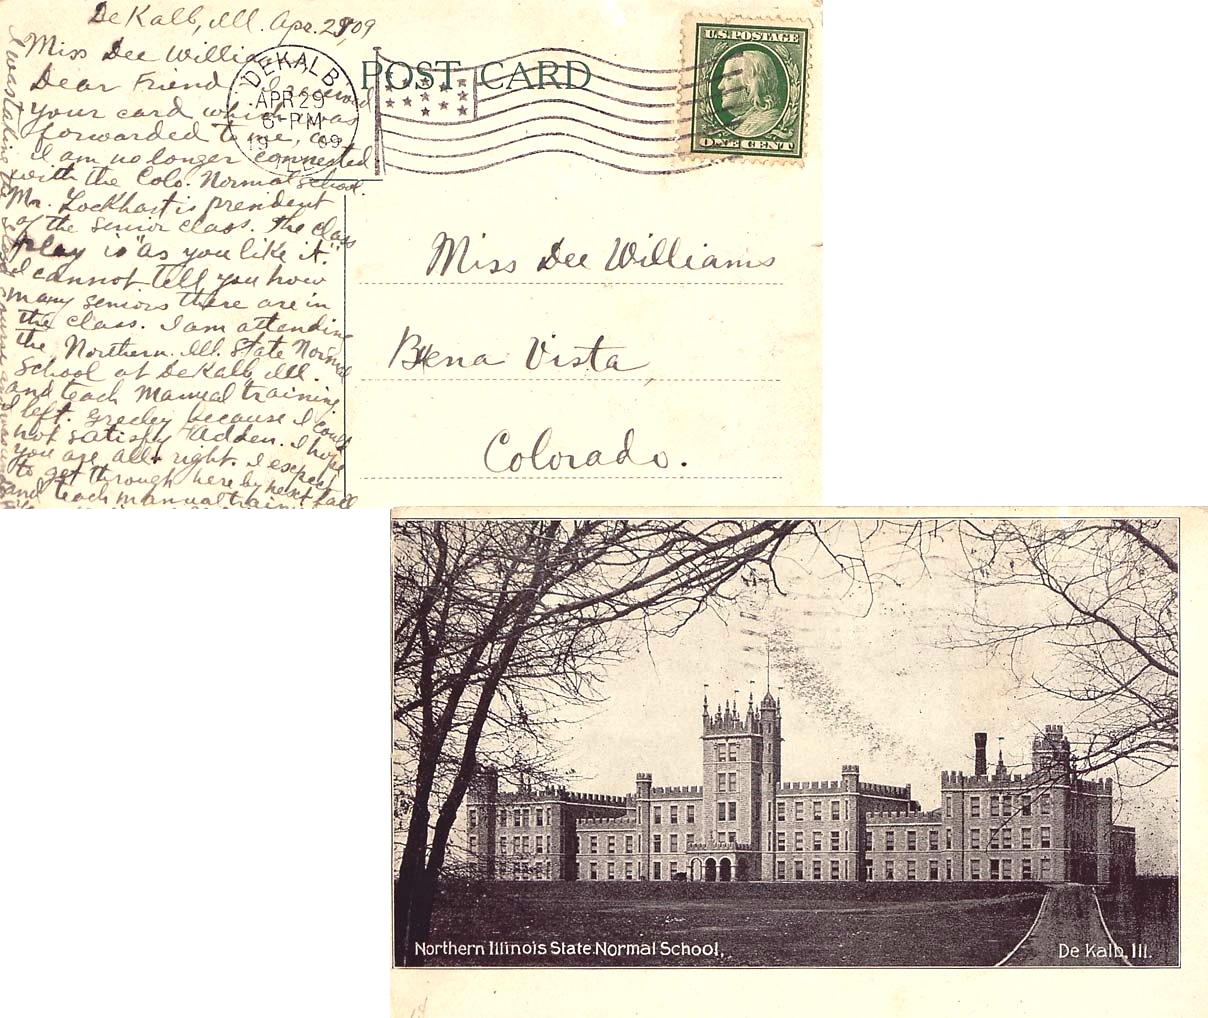 De Kalb, Ill. Apr. 29, 09
Miss Dee Williams
Dear Friend I received
your card which was
forwarded to me, as
I am no longer connected
with the Colo. Normal School.
Mr. Lockhart is president
of the senior class. The class
play is "as you like it."
I cannot tell you how
many seniors there are in
the class. I am attending
the Northern. Ill. State Normal
School at DeKalb, Ill.
and teach Manual training.
I left. Greeley because I could
not satisfy Hadden. I hope
you are all right. I expect
to get through here by next fall
and teach manual training
I was taking the
DEKALB
APR 29
6-PM
19 09
ILL
POST CARD
U.S. POSTAGE
ONE CENT
Miss Dee Williams
Buena Vista,
Colorado.
Northern Illinois State Normal School,
De Kalb, Ill.